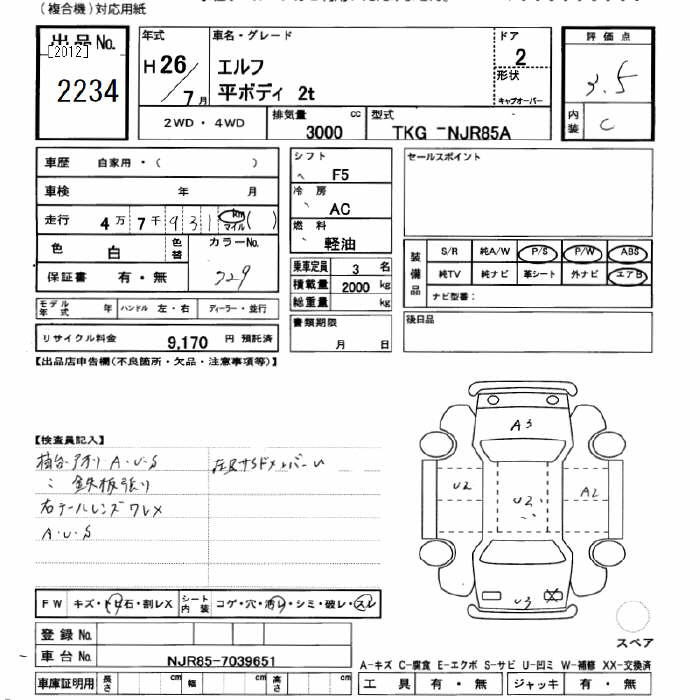 (複合機)対応用紙
出品No.
[2012]
2234
年式
H26/7月
車名・グレード
エルフ
平ボディ 2t
ドア
2
形状
キャブオーバー
評価点
3.5
内装
C
2WD・4WD
排気量
3000 cc
型式
TKG -NJR85A
車歴 自家用・( )
車検 年 月
走行 4万7千931 km マイル( )
色 白 色替
カラーNo.
729
保証書 有・無
シフト
F5
冷房
AC
燃料
軽油
乗車定員 3 名
積載量 2000 kg
総重量 kg
セールスポイント
装備品
S/R 純A/W P/S P/W ABS
純TV 純ナビ 革シート 外ナビ エアB
ナビ型番:
モデル年式 年 ハンドル 左・右 ディーラー・並行
リサイクル料金 9,170 円 預託済
書類期限
月 日
後日品
【出品店申告欄(不良箇所・欠品・注意事項等)】
【検査員記入】
荷台・アオリ A・U・S
〃 鉄板張り
右テールレンズワレX
A・U・S
A3
U2
U2
A2
U3
X
FW キズ・トビ石・割レX
シート内装 コゲ・穴・汚レ・シミ・破レ・スレ
登録No.
車台No. NJR85-7039651
車庫証明用 長さ cm 幅 cm 高さ cm
スペア
A-キズ C-腐食 E-エクボ S-サビ U-凹ミ W-補修 XX-交換済
工具 有・無 ジャッキ 有・無